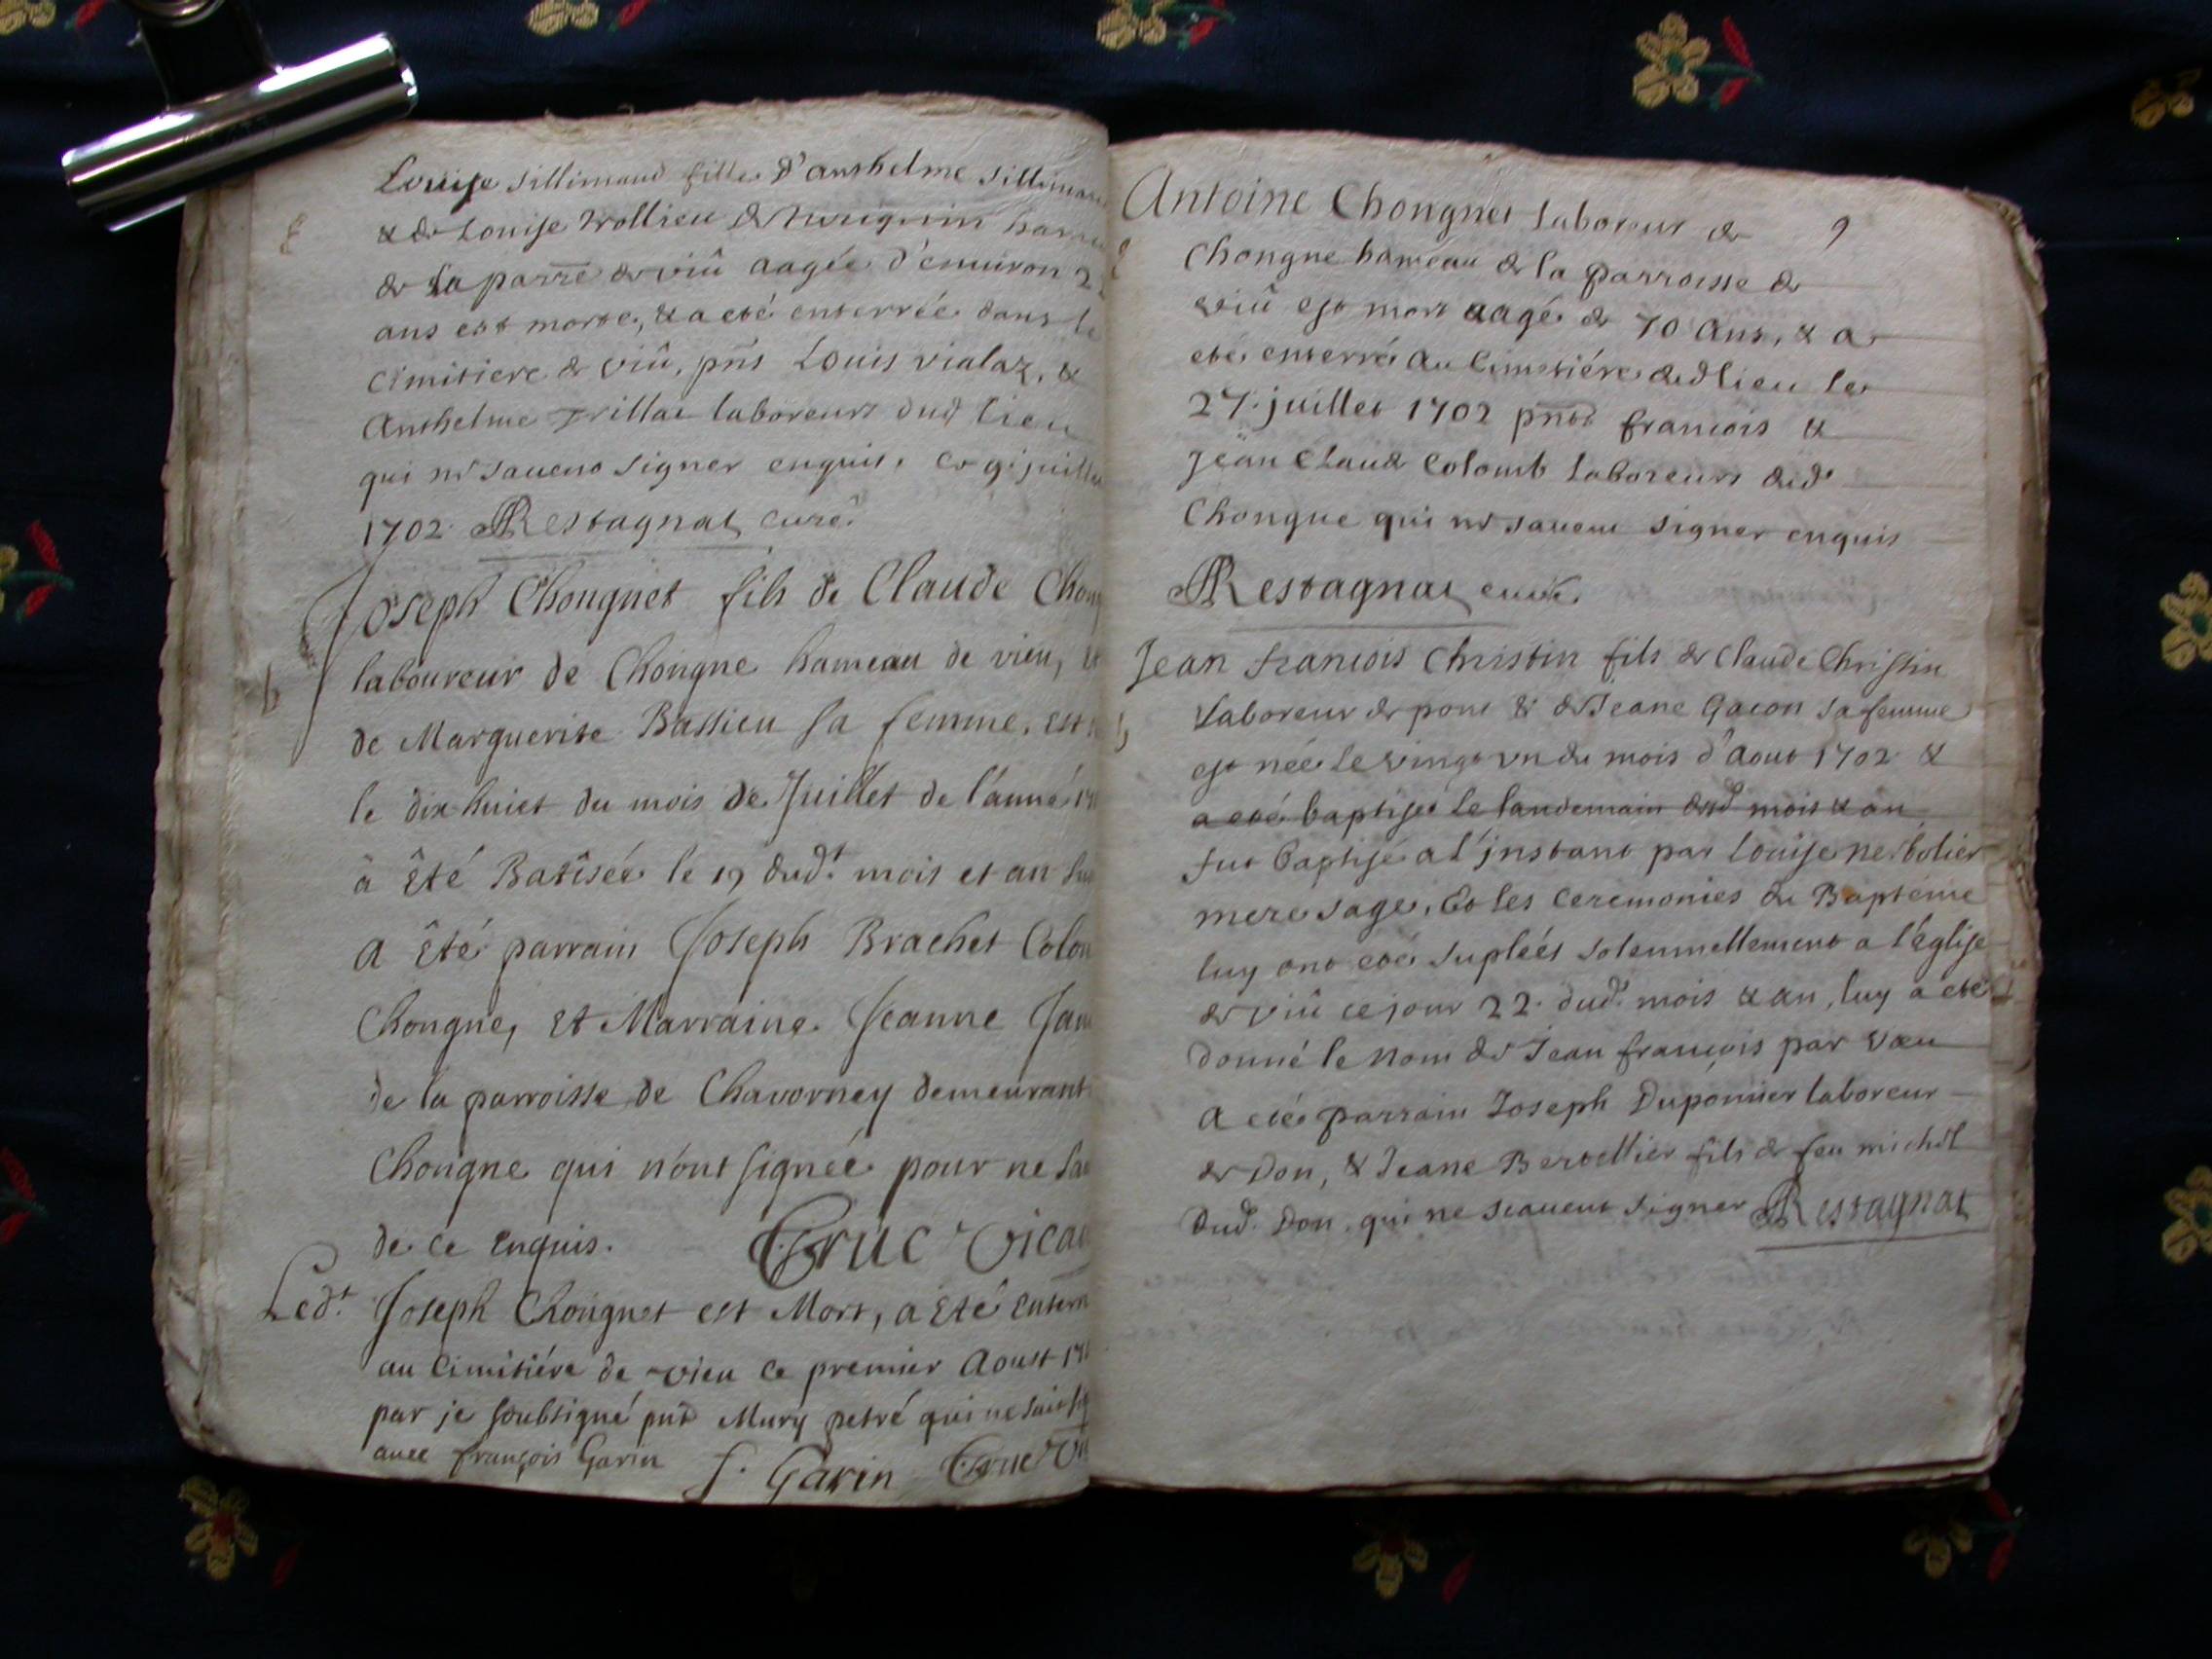 Louise Sillimand fille d'anthelme Sillimand
& de Louise Trollieu de
de la parre de viû aagée d'enuiron 2
ans est morte, & a eté enterrée dans le
cimitiere de viû, pns Louis vialaz, &
Anthelme Trillat laboreurs dud lieu
qui ne sauent signer enquis, ce 9. juillet
1702. Restagnat curé.
Joseph Chongnet fils de Claude Chong
laboureur de Chongne hameau de vieu, et
de Marguerite Bassieu sa femme, est
le dix huict du mois de Juillet de l'anné 17
à êté Batîsée le 19 dud.t mois et an
a êté parrain Joseph Brachet Colon
Chongne, et Marraine Jeanne Jan
de la parroisse de Chavorney demeurant
Chongne qui n'ont signée pour ne sa
de ce enquis. Gruc Vicai
Led.t Joseph Chongnet est Mort, a été enterr
au cimitiére de vieu ce premier Aoust 17
par je soubsigné pnt Mury petré qui ne sait
auec françois Garin f. Garin Gruc Vi
Antoine Chongnet laboreur de 9
Chongne hameau de la parroisse de
viû est mort aagé de 70 ans, & a
eté enterré au Cimitiére dud lieu le
27. juillet 1702 pnts francois &
Jean Claude Colomb laboreurs dud.
Chongne qui ne sauent signer enquis
Restagnat curé.
Jean francois Christin fils de Claude Christin
Laboreur de pont & de Jeane Gacon sa femme
est née le vingt vn du mois d'aout 1702 &
a eté baptisé le landemain dud mois & an
fut baptisé a l'jnstant par Louise nerbolier
mere sage, Et les ceremonies du Baptéme
luy ont eté supleés solennellement a l'Eglise
de viû ce jour 22. dud. mois & an, luy a eté
donné le nom de Jean françois par vœu
a eté parrain Joseph Duponnier laboreur
de Don, & Jeane Bertellier fils de feu michel
dud. Don. qui ne scauent signer Restagnat